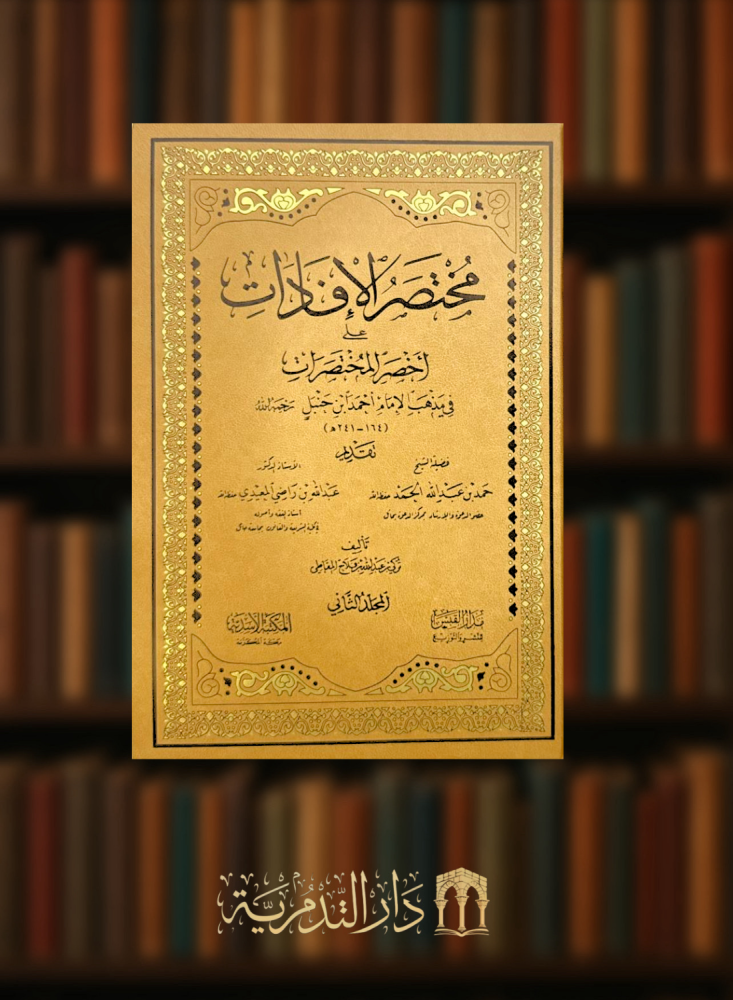 مُختَصَرُ الإِفَادَاتِ
على
أَخْصَرِ المُخْتَصَرَاتِ
فِي مَذْهَبِ الإِمَامِ أَحْمَدَ ابْنِ حَنْبَلٍ رَحِمَهُ اللهُ
(١٦٤-٢٤١هـ)
تقديم
فضيلة الشيخ
حمد بن عبد الله الحمد حفظه الله
عضو الدعوة والإرشاد بمركز الدعوة بحائل
الأستاذ الدكتور
عبدالله بن راضي المعيدي حفظه الله
أستاذ الفقه وأصوله
بكلية الشريعة والقانون بجامعة حائل
تأليف
تركي بن عبدالله
المجلد الثاني
مدار القبس
للنشر والتوزيع
المكتبة الأسدية
مكة المكرمة
دَارُ التَّدْمُرِيَّة